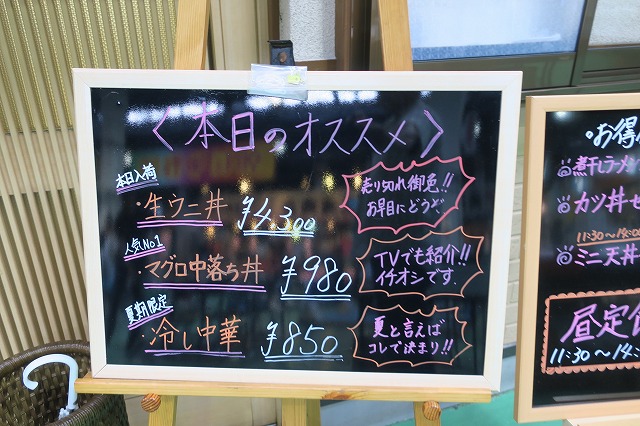 〈本日のオススメ〉
本日入荷
・生ウニ丼 ¥4300
売り切れ御免!!
お早目にどうぞ、
人気No1
・マグロ中落ち丼 ¥980
TVでも紹介!!
イチオシです.
夏期限定
・冷し中華 ¥850
夏と言えば
コレで決まり!!
・お得
煮干しラーメ
カツ丼セ
11:30〜14:00
ミニ天丼
昼定食
11:30〜14